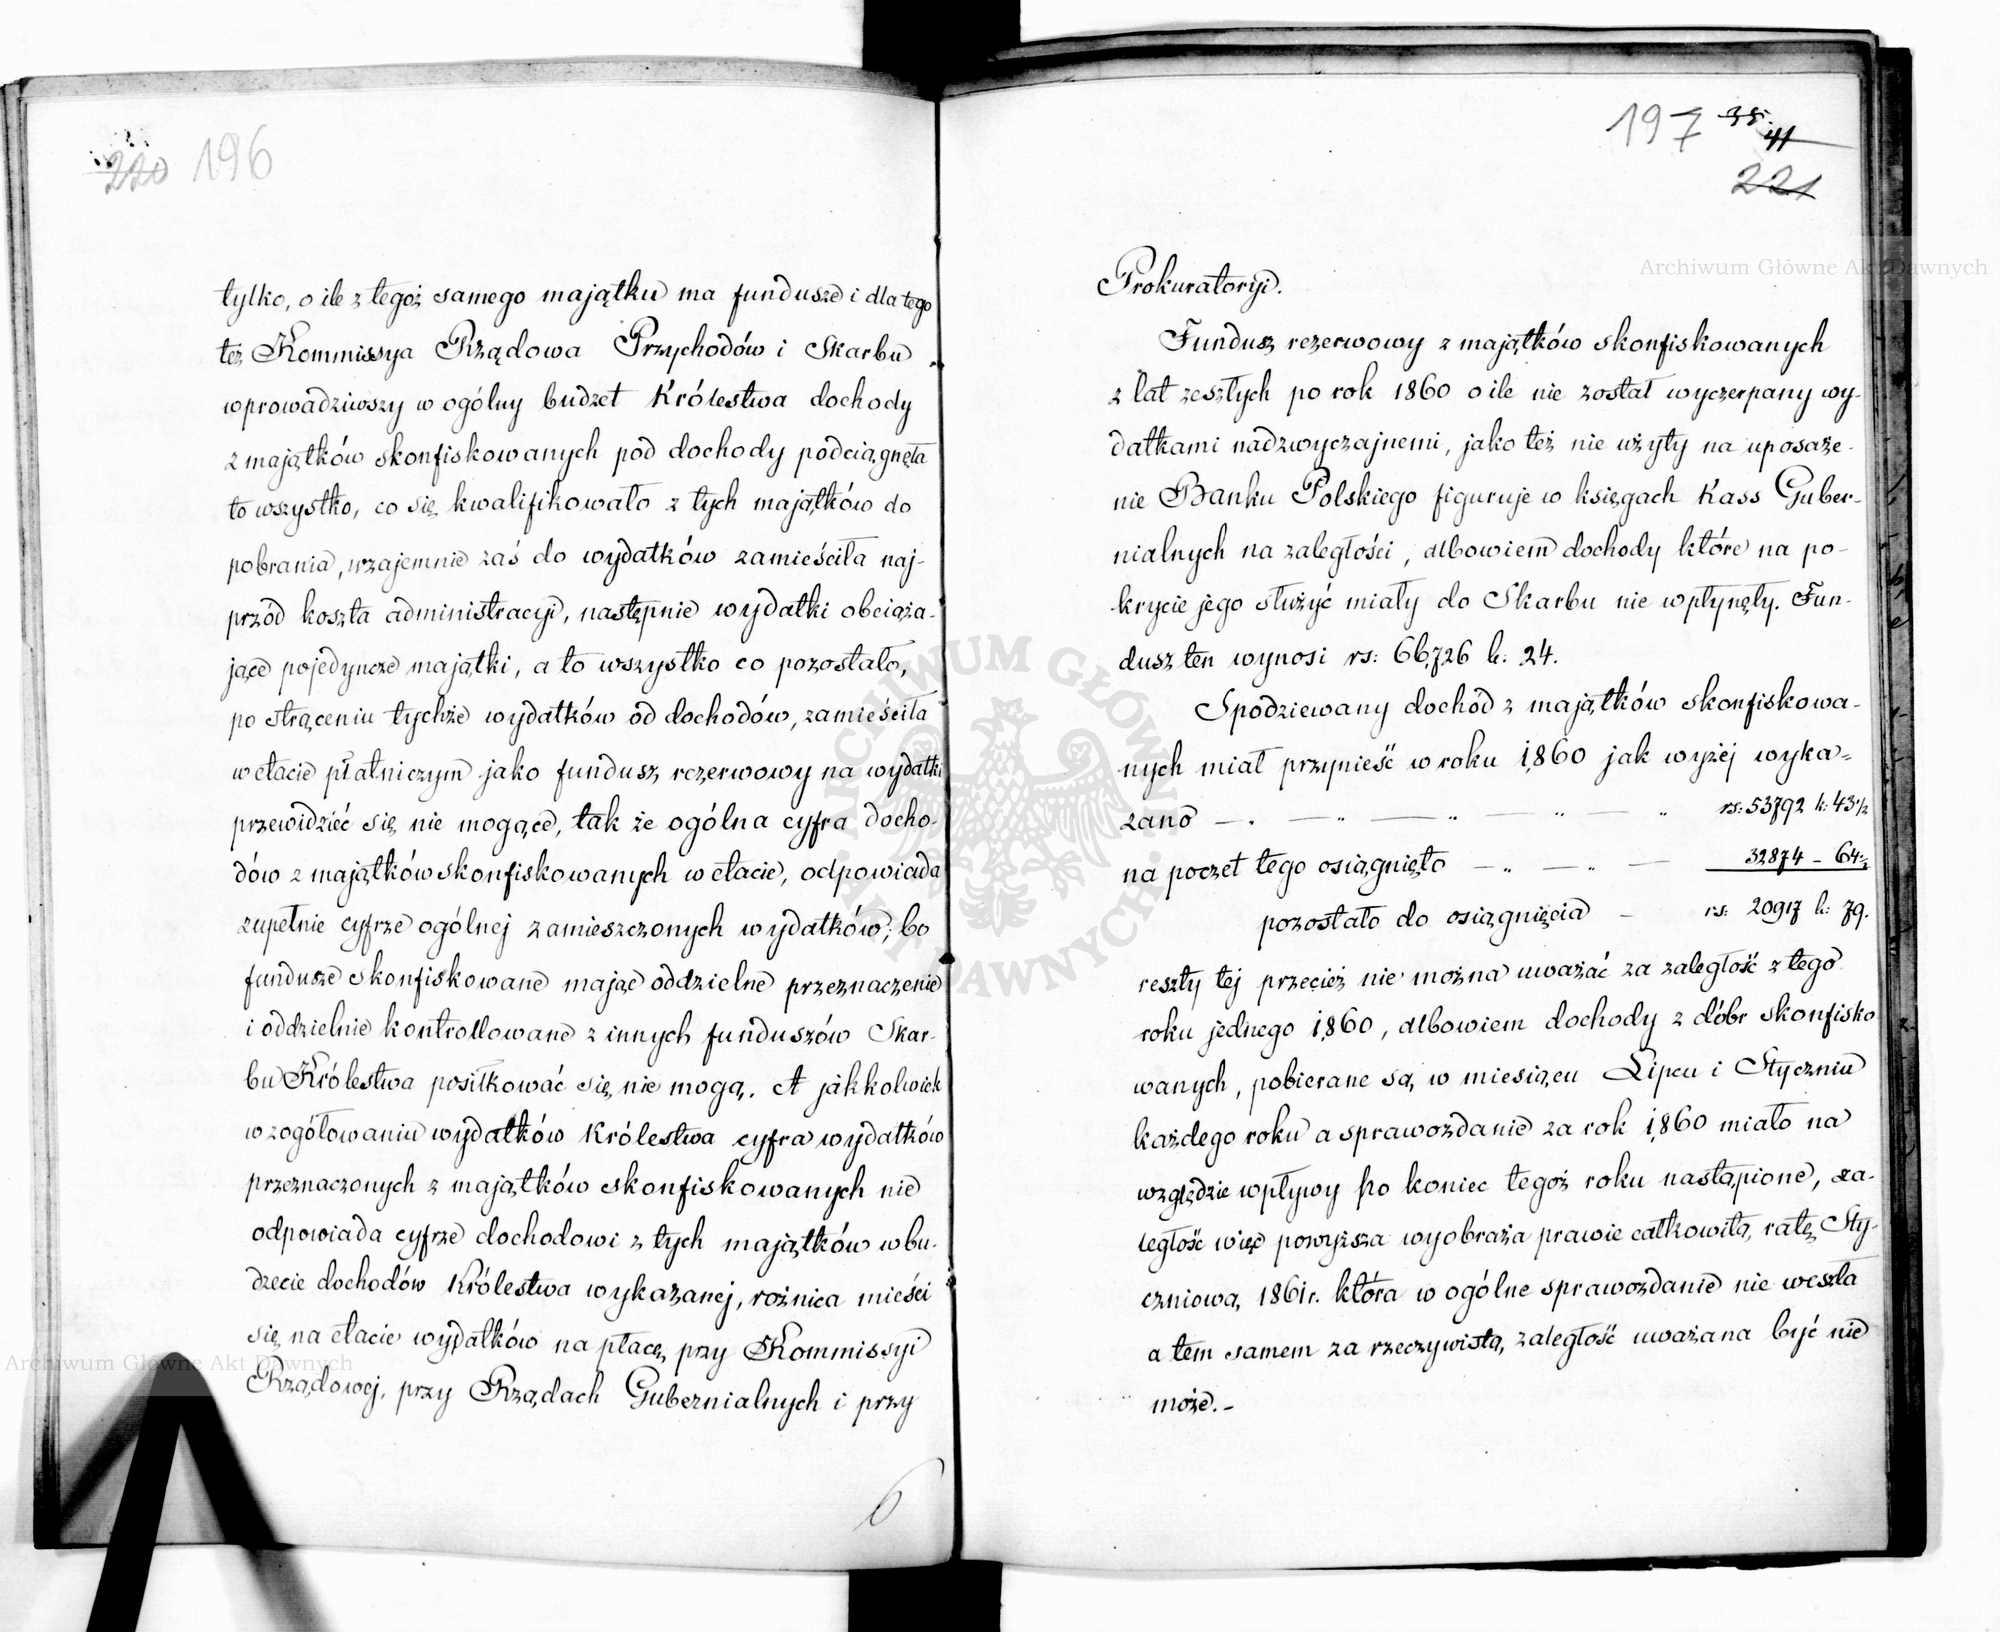 220 196
tylko, o ile z tegoż samego majątku ma fundusze i dla tego
też Kommissya Rządowa Przychodów i Skarbu
wprowadziwszy w ogólny budżet Królestwa dochody
z majątków skonfiskowanych pod dochody podciągnęła
to wszystko, co się kwalifikowało z tych majątków do
pobrania, wzajemnie zaś do wydatków zamieściła naj-
przód koszta administracyi, następnie wydatki obciąża-
jące pojedyncze majątki, a to wszystko co pozostało,
po strąceniu tychże wydatków od dochodów, zamieściła
w etacie płatniczym jako fundusz rezerwowy na wydatki
przewidzieć się nie mogące, tak że ogólna cyfra docho-
dów z majątków skonfiskowanych w etacie, odpowiada
zupełnie cyfrze ogólnej zamieszczonych wydatków; bo
fundusze skonfiskowane mając oddzielne przeznaczenie
i oddzielnie kontrollowane z innych funduszów Skar-
bu Królestwa posiłkować się nie mogą. A jakkolwiek
w zogółowaniu wydatków Królestwa cyfra wydatków
przeznaczonych z majątków skonfiskowanych nie
odpowiada cyfrze dochodowi z tych majątków w bu-
dżecie dochodów Królestwa wykazanej, rożnica mieści
się na etacie wydatków na płacę przy Kommissyi
Rządowej, przy Rządach Gubernialnych i przy
6
197 35.
41
221
Prokuratoryi.
Fundusz rezerwowy z majątków skonfiskowanych
z lat zeszłych po rok 1860 o ile nie został wyczerpany wy-
datkami nadzwyczajnemi, jako też nie użyty na uposaże-
nie Banku Polskiego figuruje w księgach Kass Guber-
nialnych na zaległości, albowiem dochody które na po-
krycie jego służyć miały do Skarbu nie wpłynęły. Fun-
dusz ten wynosi rs: 66,726 k: 24.
Spodziewany dochód z majątków skonfiskowa-
nych miał przynieść w roku 1860 jak wyżej wyka-
zano — „ — „ — „ — „ — „ rs: 53792 k: 43½
na poczet tego osiągnięto — „ — „ — 32874 — 64½
pozostało do osiągnięcia — rs: 20917 k: 79.
reszty tej przecież nie można uważać za zaległość z tego
roku jednego 1860, albowiem dochody z dóbr skonfisko
wanych, pobierane są w miesiącu Lipcu i Styczniu
każdego roku a sprawozdanie za rok 1860 miało na
względzie wpływy po koniec tegoż roku nastąpione, za-
ległość więc powyższa wyobraża prawie całkowitą ratę Sty-
czniową 1861 r. która w ogólne sprawozdanie nie weszła
a tem samem za rzeczywistą zaległość uważana być nie
może.-
Archiwum Główne Akt Dawnych
Archiwum Główne Akt Dawnych
ARCHIWUM GŁÓWNE AKT DAWNYCH